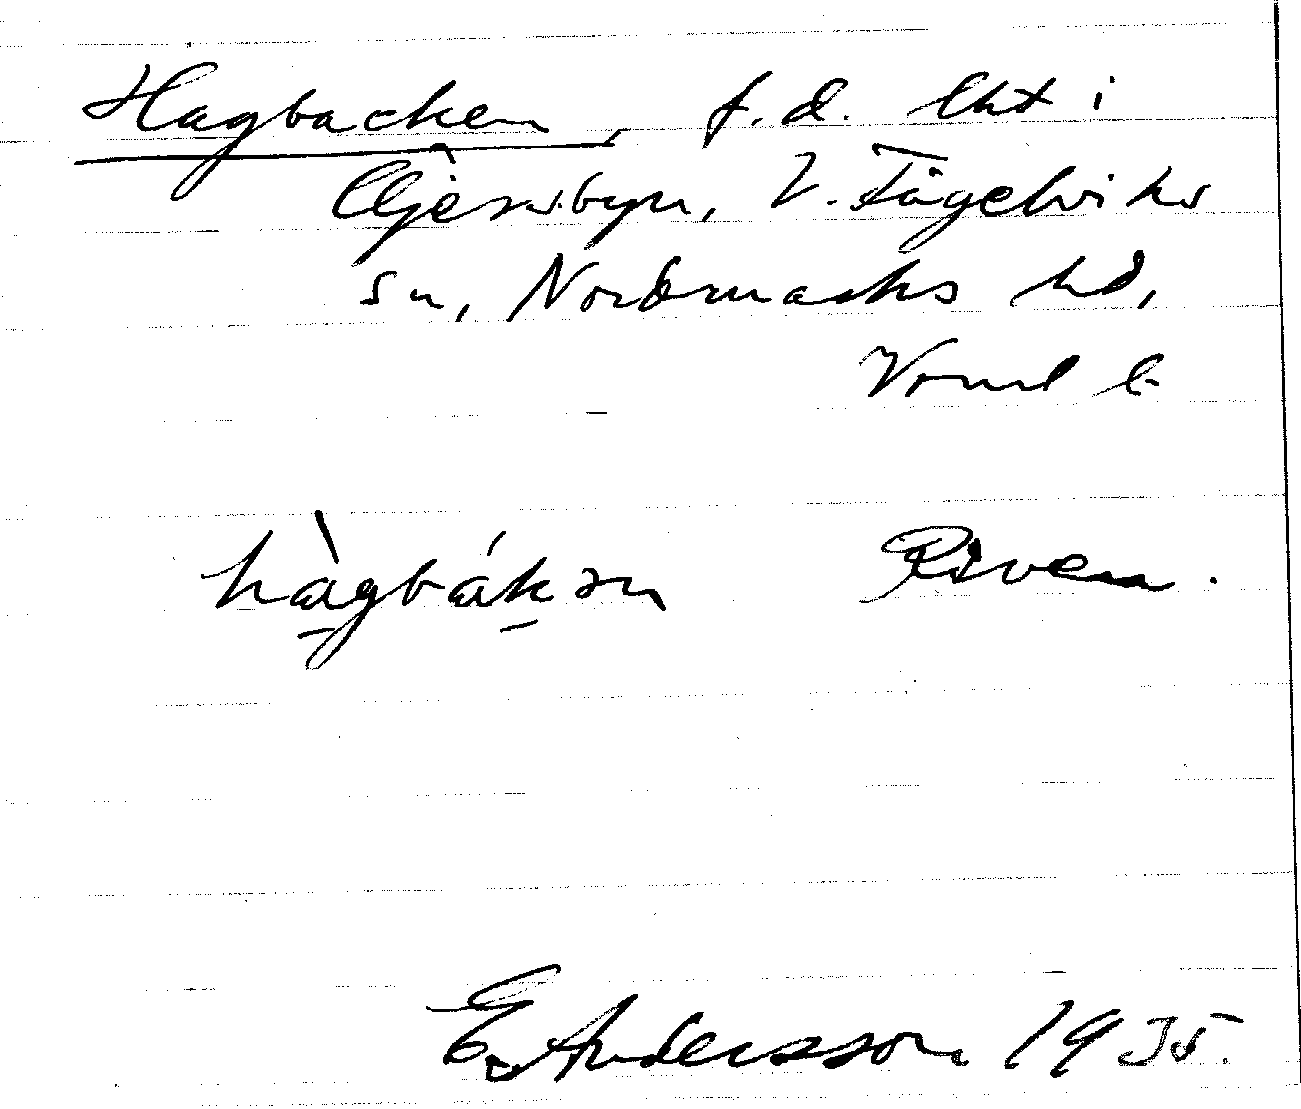 Hagbacken, f.d. lht i
V. Fågelviks
sn, Nordmarks hd,
Vrml l.
hàgbákən Riven.
E. Andersson 1935.